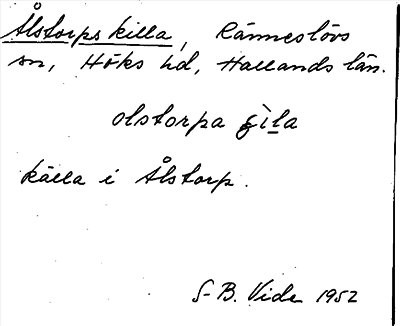 Ålstorps killa, Ränneslövs
sn, Höks hd, Hallands län.
olstorpa ʂìla
källa i Ålstorp.
S-B. Vide 1952